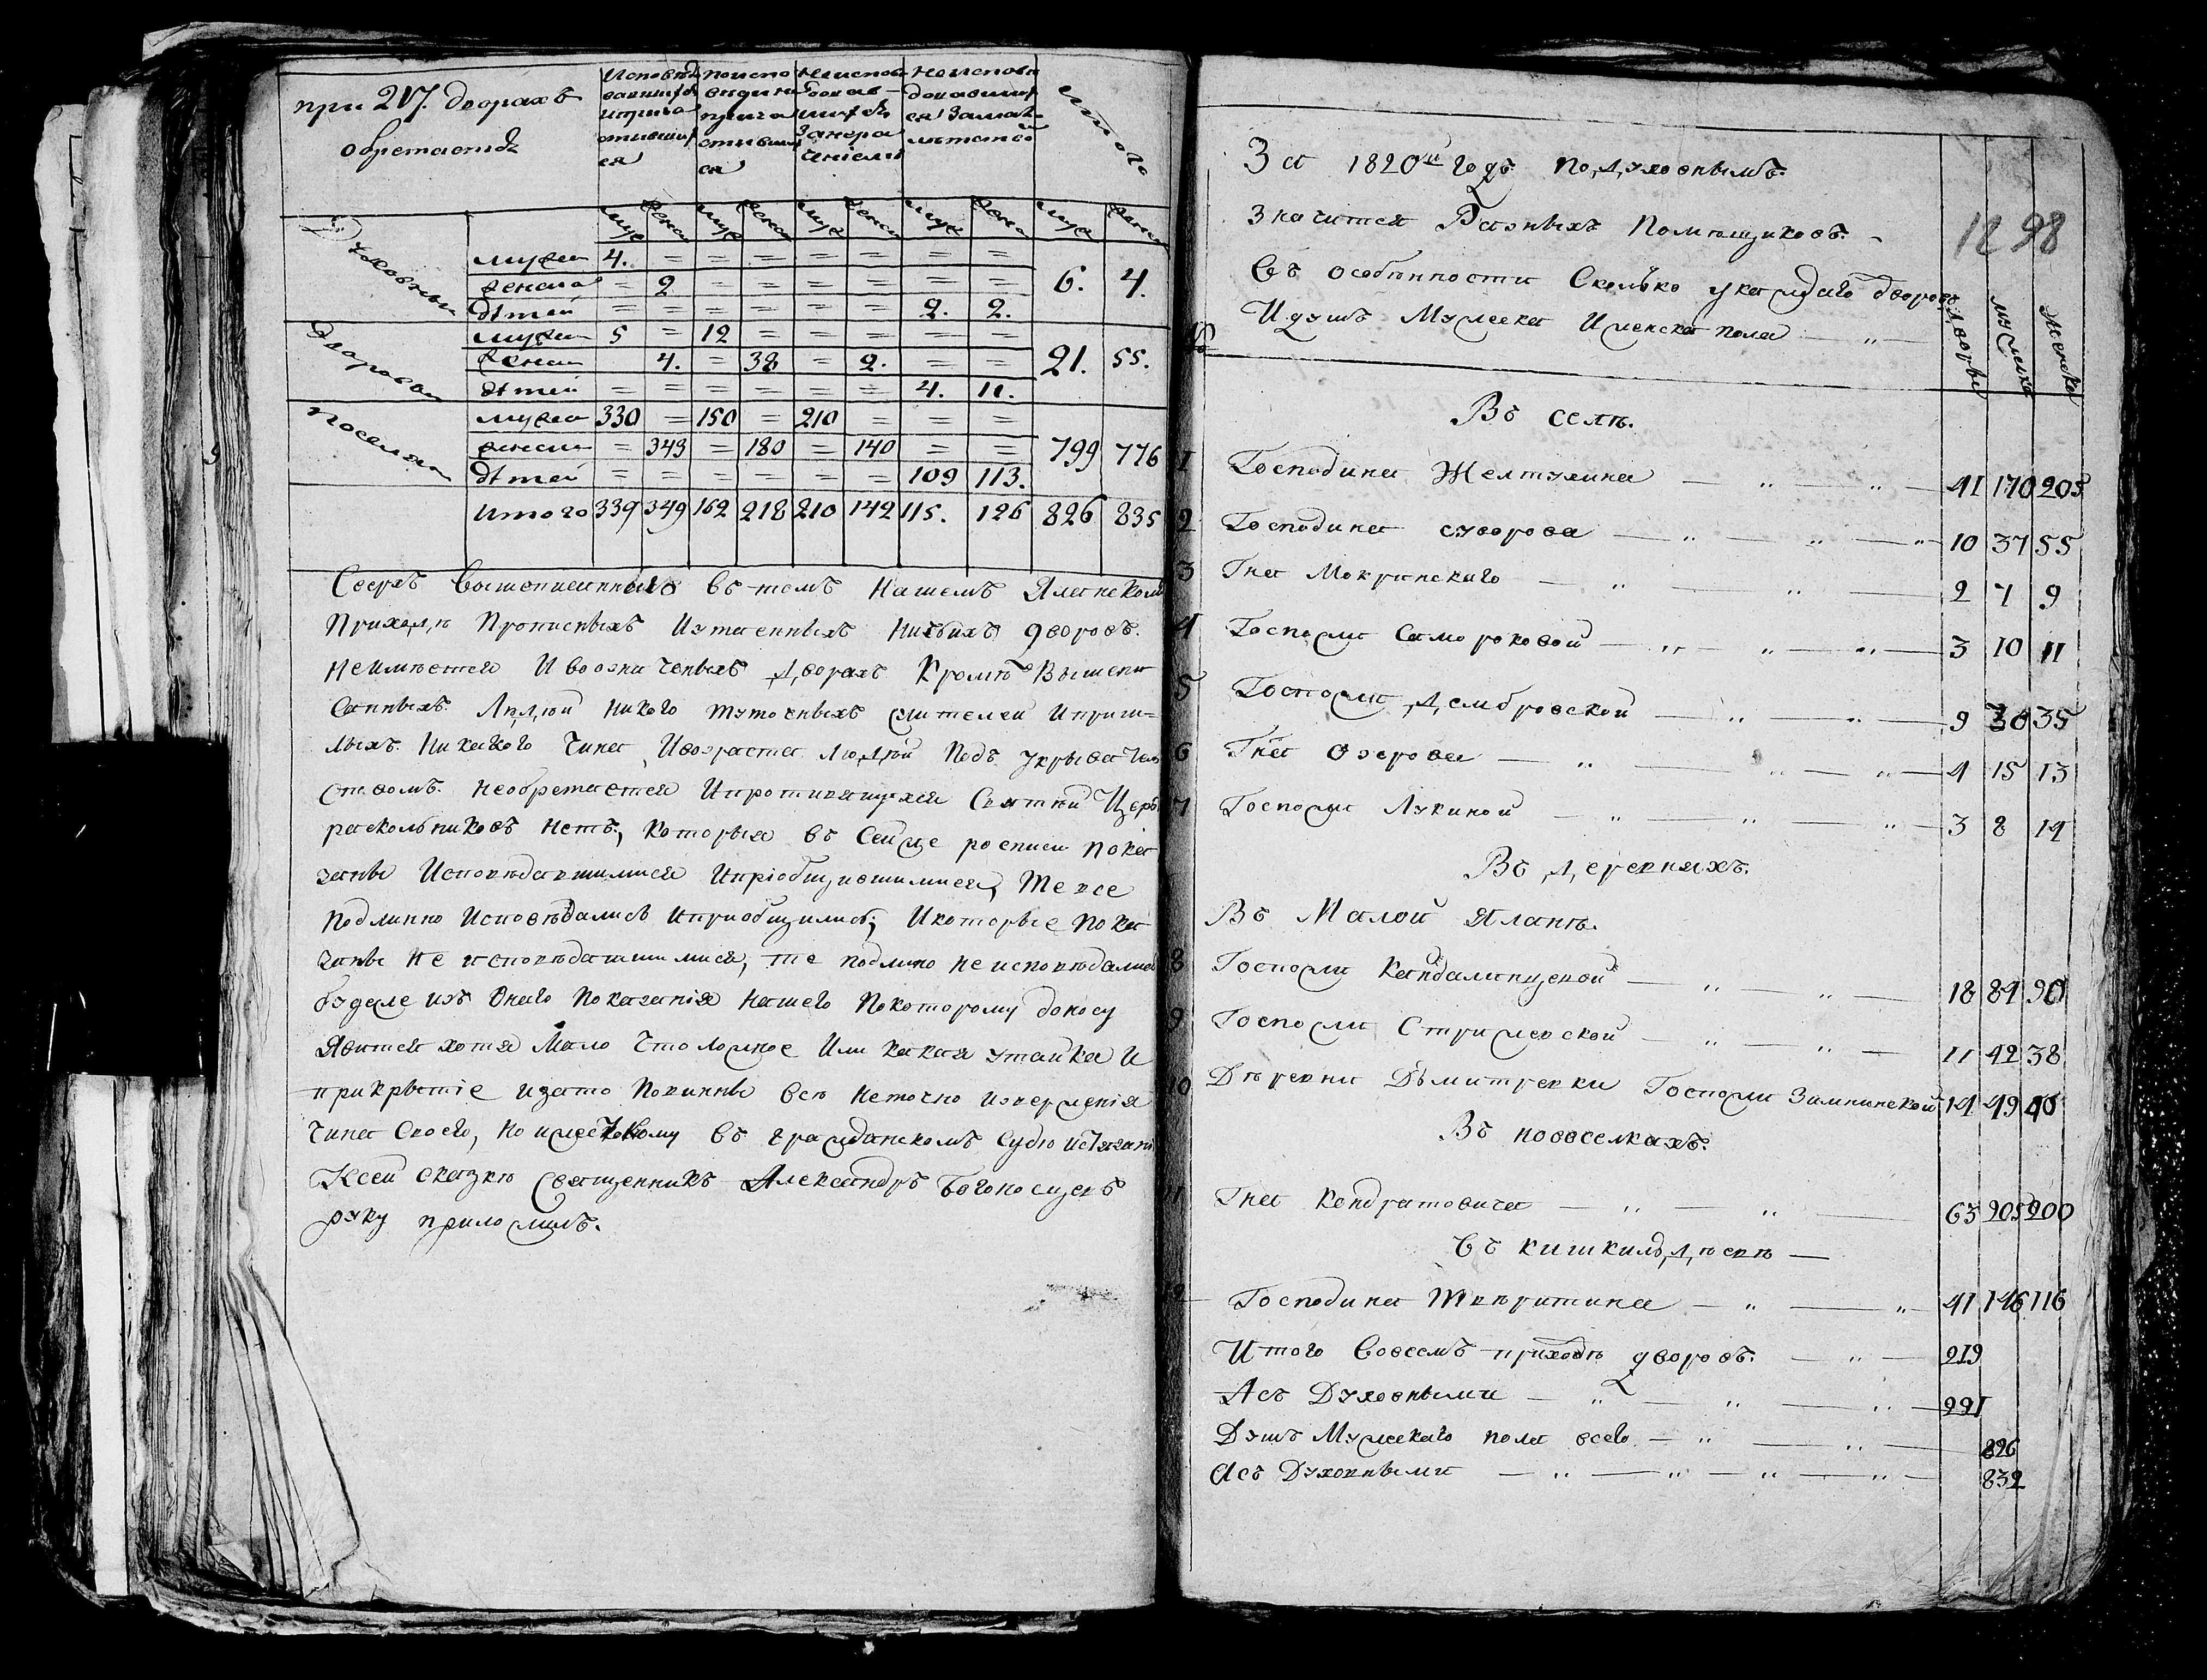 при 217. дворахъ
обретается
Исповѣдавшихся и причастившихся
по исповеди не причастившихся
не исповедавшихся за нерачениемъ
не исповедовавшихся за малолетствомъ
итого
муж женск муж женск муж женск муж женск муж женск
Духовныхъ
мужей 4. = = = = = = =
женска = 2 = = = = = = 6. 4.
детей = = = = = = 2. 2.
Дворовыхъ
мужей 5 = 12 = = = = =
женска 4. = 38 = 2. = = 21. 55.
детей = = = = = = 4. 11.
Поселянъ
мужей 330 = 150 = 210 = = =
женска = 343 = 180 = 140 = = 799 776
детей = = = = = = 109 113.
итого 339 349 162 218 210 142 115. 126 826 835
Сверхъ вышеписанныхъ въ томъ нашемъ Яланском
Приходѣ прописныхъ и утаенныхъ никакихъ дворовъ.
неимѣется и воозначеныхъ дворахъ кромѣ вышепи
санныхъ. людѣй никого тутошныхъ жителей и приш=
лыхъ. никакого чина и возраста людѣй подъ укрыватель
ствомъ. необретается и противящихся святѣй Церк
раскольниковъ нетъ, которыя въ сей же росписи пока
заны исповѣдавшимися и приобщившимися, те все
подлинно исповѣдались и приобщились; и которые пока
заны не исповѣдавшимися, те подлино не исповѣдались
будеже изъ онаго показания нашего по которому доносу
явится хотя мало что ложное или какая утайка и
прикрытие и за то повинны всѣ неточно извержения
чина своего, но и жестокому въ гражданскомъ судѣ истязани
К сей сказкѣ священникъ Александръ Богоносцевъ
руку приложилъ.
За 1820й годъ по,д,уховнымъ.
значится разныхъ помѣщиковъ. –
въ особѣнности сколько у каждаго дворовъ
и душъ мужеска и женска пола — „ —
1298
№ дворы мужска женска
Въ селѣ.
1 Господина Желтухина — „ — „ — 41 170 205
2 Господина Суворова — „ — „ — „ — 10 37 55
3 Гна Мокринскаго — „ — „ — 2 7 9
4 Госпожи Самороковой — „ — „ — „ — 3 10 11
5 Госпожи ,Д,ембровской — „ — „ — 9 30 35
6 Гна Озерова — „ — „ — „ — 4 15 13
7 Госпожи Лукиной — „ — „ — „ — 3 8 14
Въ ,д,еревняхъ.
Въ Малой Яланѣ.
8 Госпожи Кандалинцевой — „ — „ — 18 84 90
9 Госпожи Стрижевской — „ — „ — 11 42 38
10 Дѣревни Дьмитревки Госпожи Зимнинской 14 49 46
Въ новоселкахъ.
11 Гна Кондратовича — „ — „ — 63 205 200
въ кишкиль,д,ѣевѣ —
12 Господина Твѣритина — „ — „ 41 146 116
Итого вовсемъ приходѣ дворовъ. — „ — 219
А съ Духовными — „ — „ — „ — 221
Душъ Мужекаго пола всего — „ — „ — 826
А съ Духовными — „ — „ — „ — „ — 832